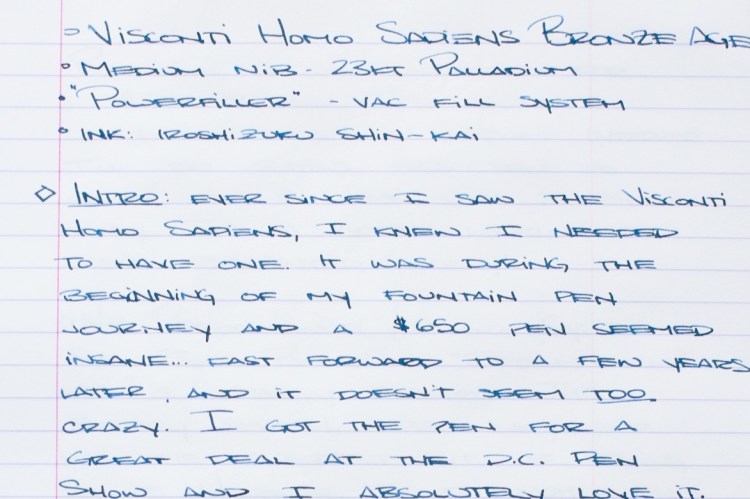 - Visconti Homo Sapiens Bronze Age
• Medium Nib - 23kt Palladium
• "Powerfiller" - vac fill system
• Ink: Iroshizuku Shin-Kai
◇ Intro: Ever since I saw the Visconti
Homo Sapiens, I knew I needed
to have one. It was during the
beginning of my fountain pen
journey and a $650 pen seemed
insane... Fast forward to a few years
later, and it doesn't seem too
crazy. I got the pen for a
great deal at the D.C. Pen
Show and I absolutely love it.